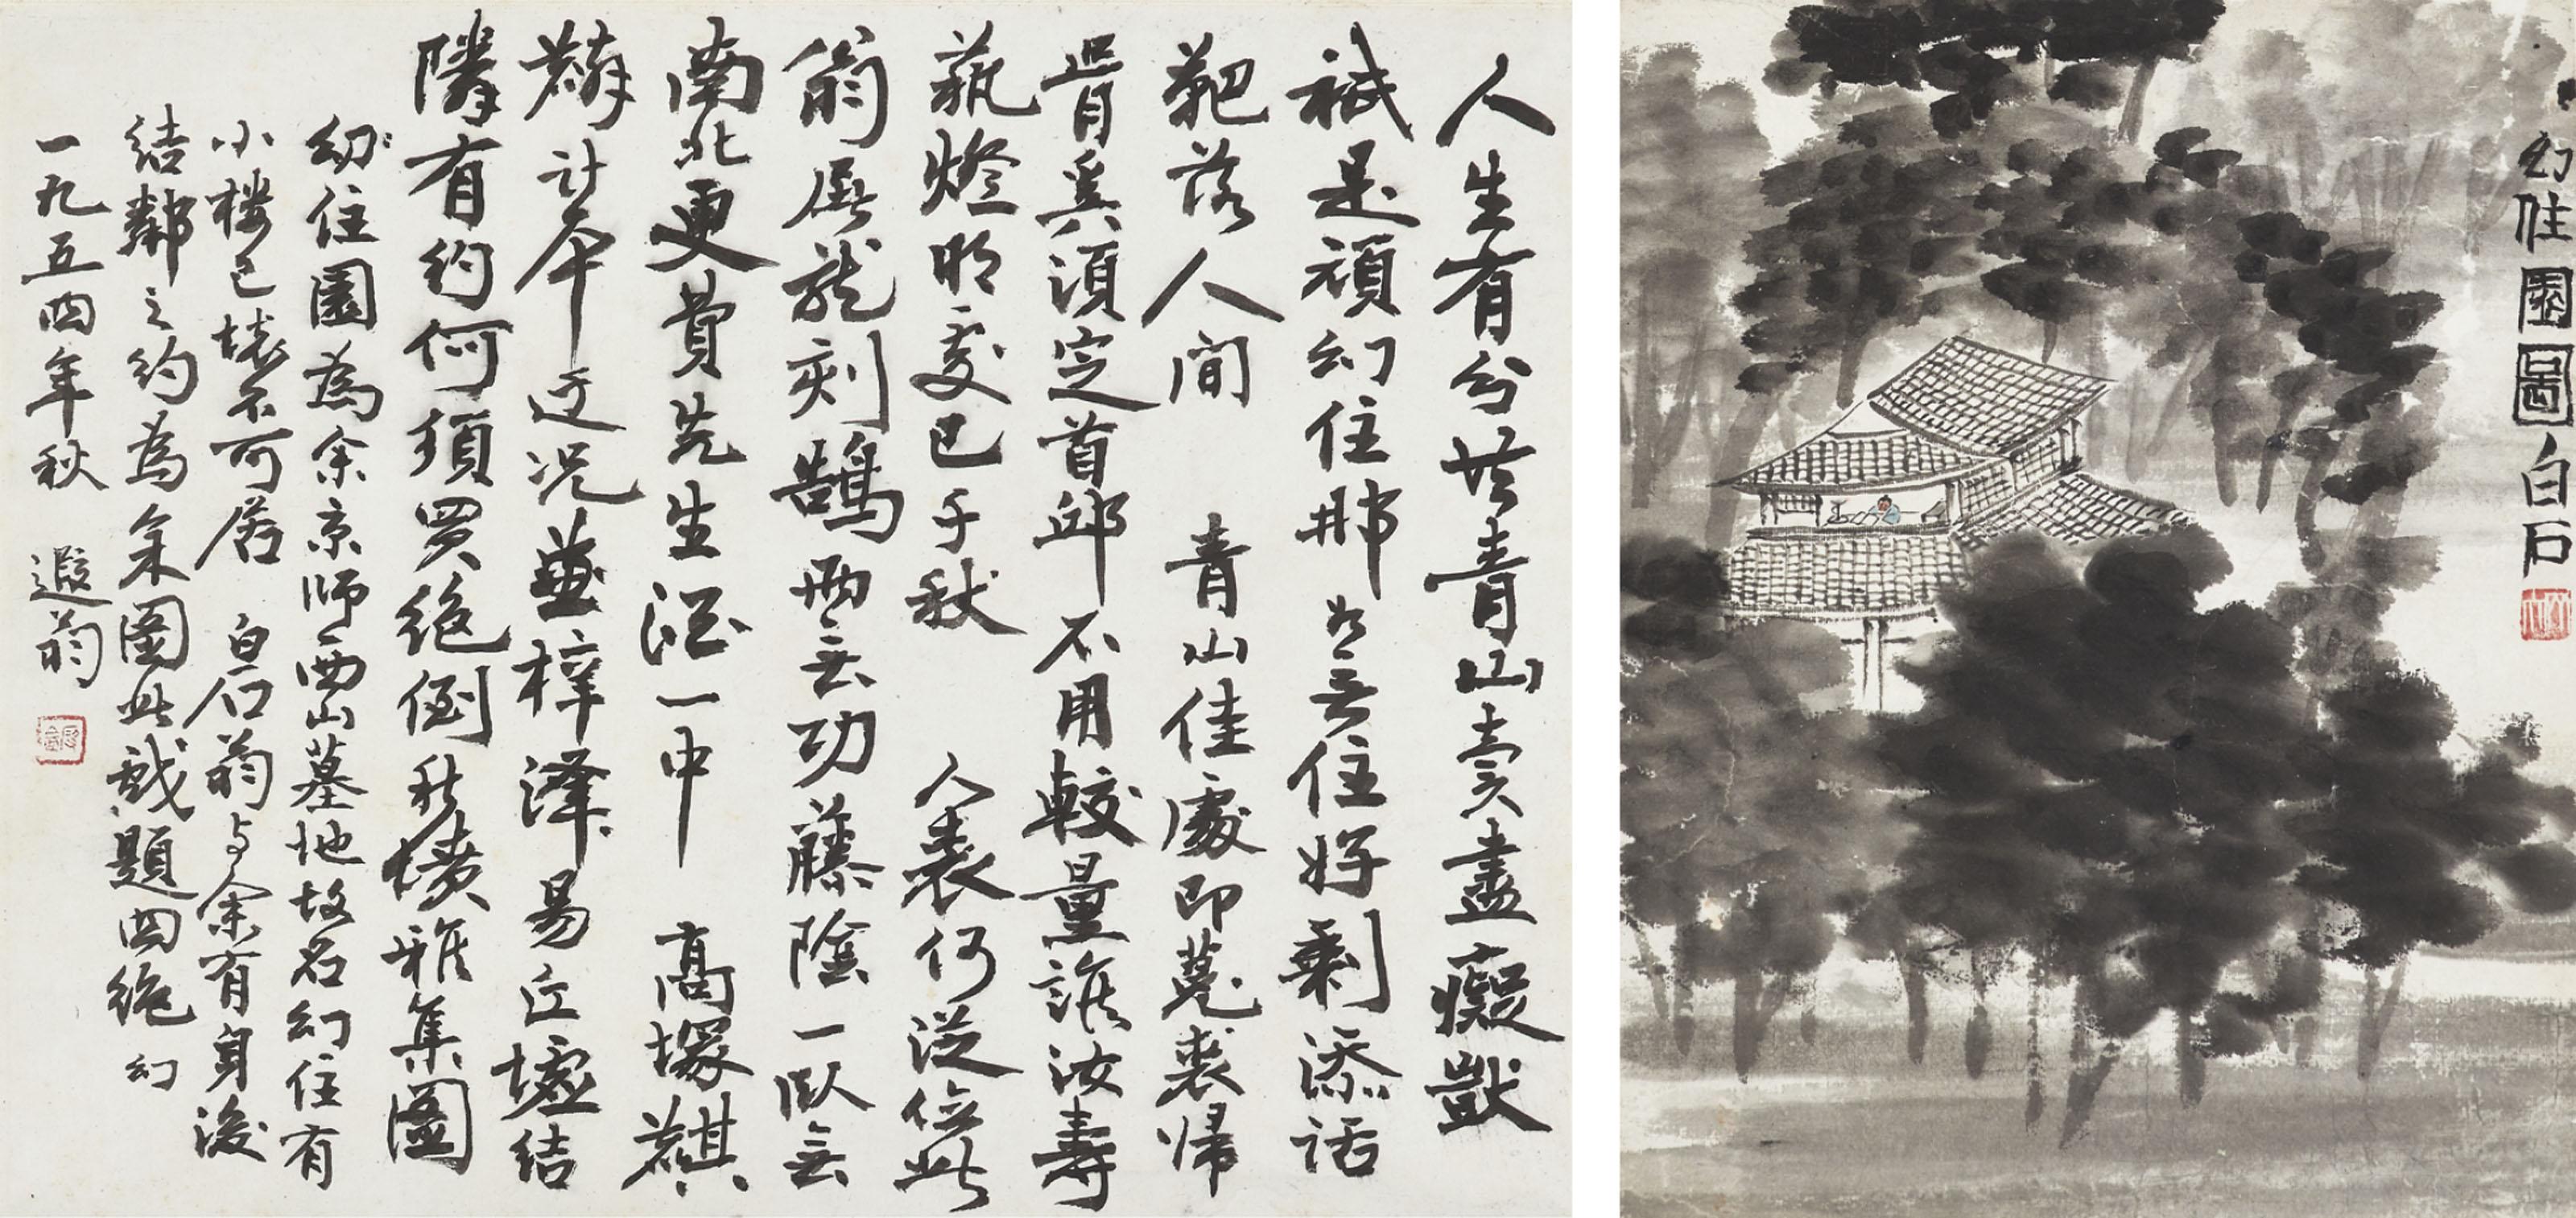 幻住園圖白石
人生有分共青山賣盡癡獃
祇是頑幻住那如無住好剩添話
靶落人間 青山佳處即菟裘歸
骨奚須定首邱不用較量誰汝壽
孤燈明處已千秋 人表何從位此
翁屠龍刻鵠兩無功藤陰一臥無
南北更費先生酒一中 高塚麒
麟計本迂況兼梓澤易丘墟結
隣有約何須買絕倒秋墳雅集圖
幻住園為余京師西山墓地故名幻住有
小樓已壞不可居 白石翁与余有身後
結鄰之約為余圖此戲題四絕 幻
一九五四年秋 遐翁